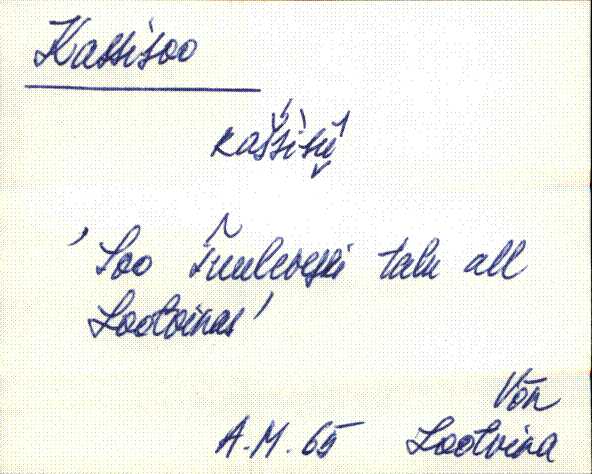 Kassisoo
kaśśisū̬
'Soo Tuuleveski talu all
Lootvinas'
Võn
A.M. 65 Lootvina